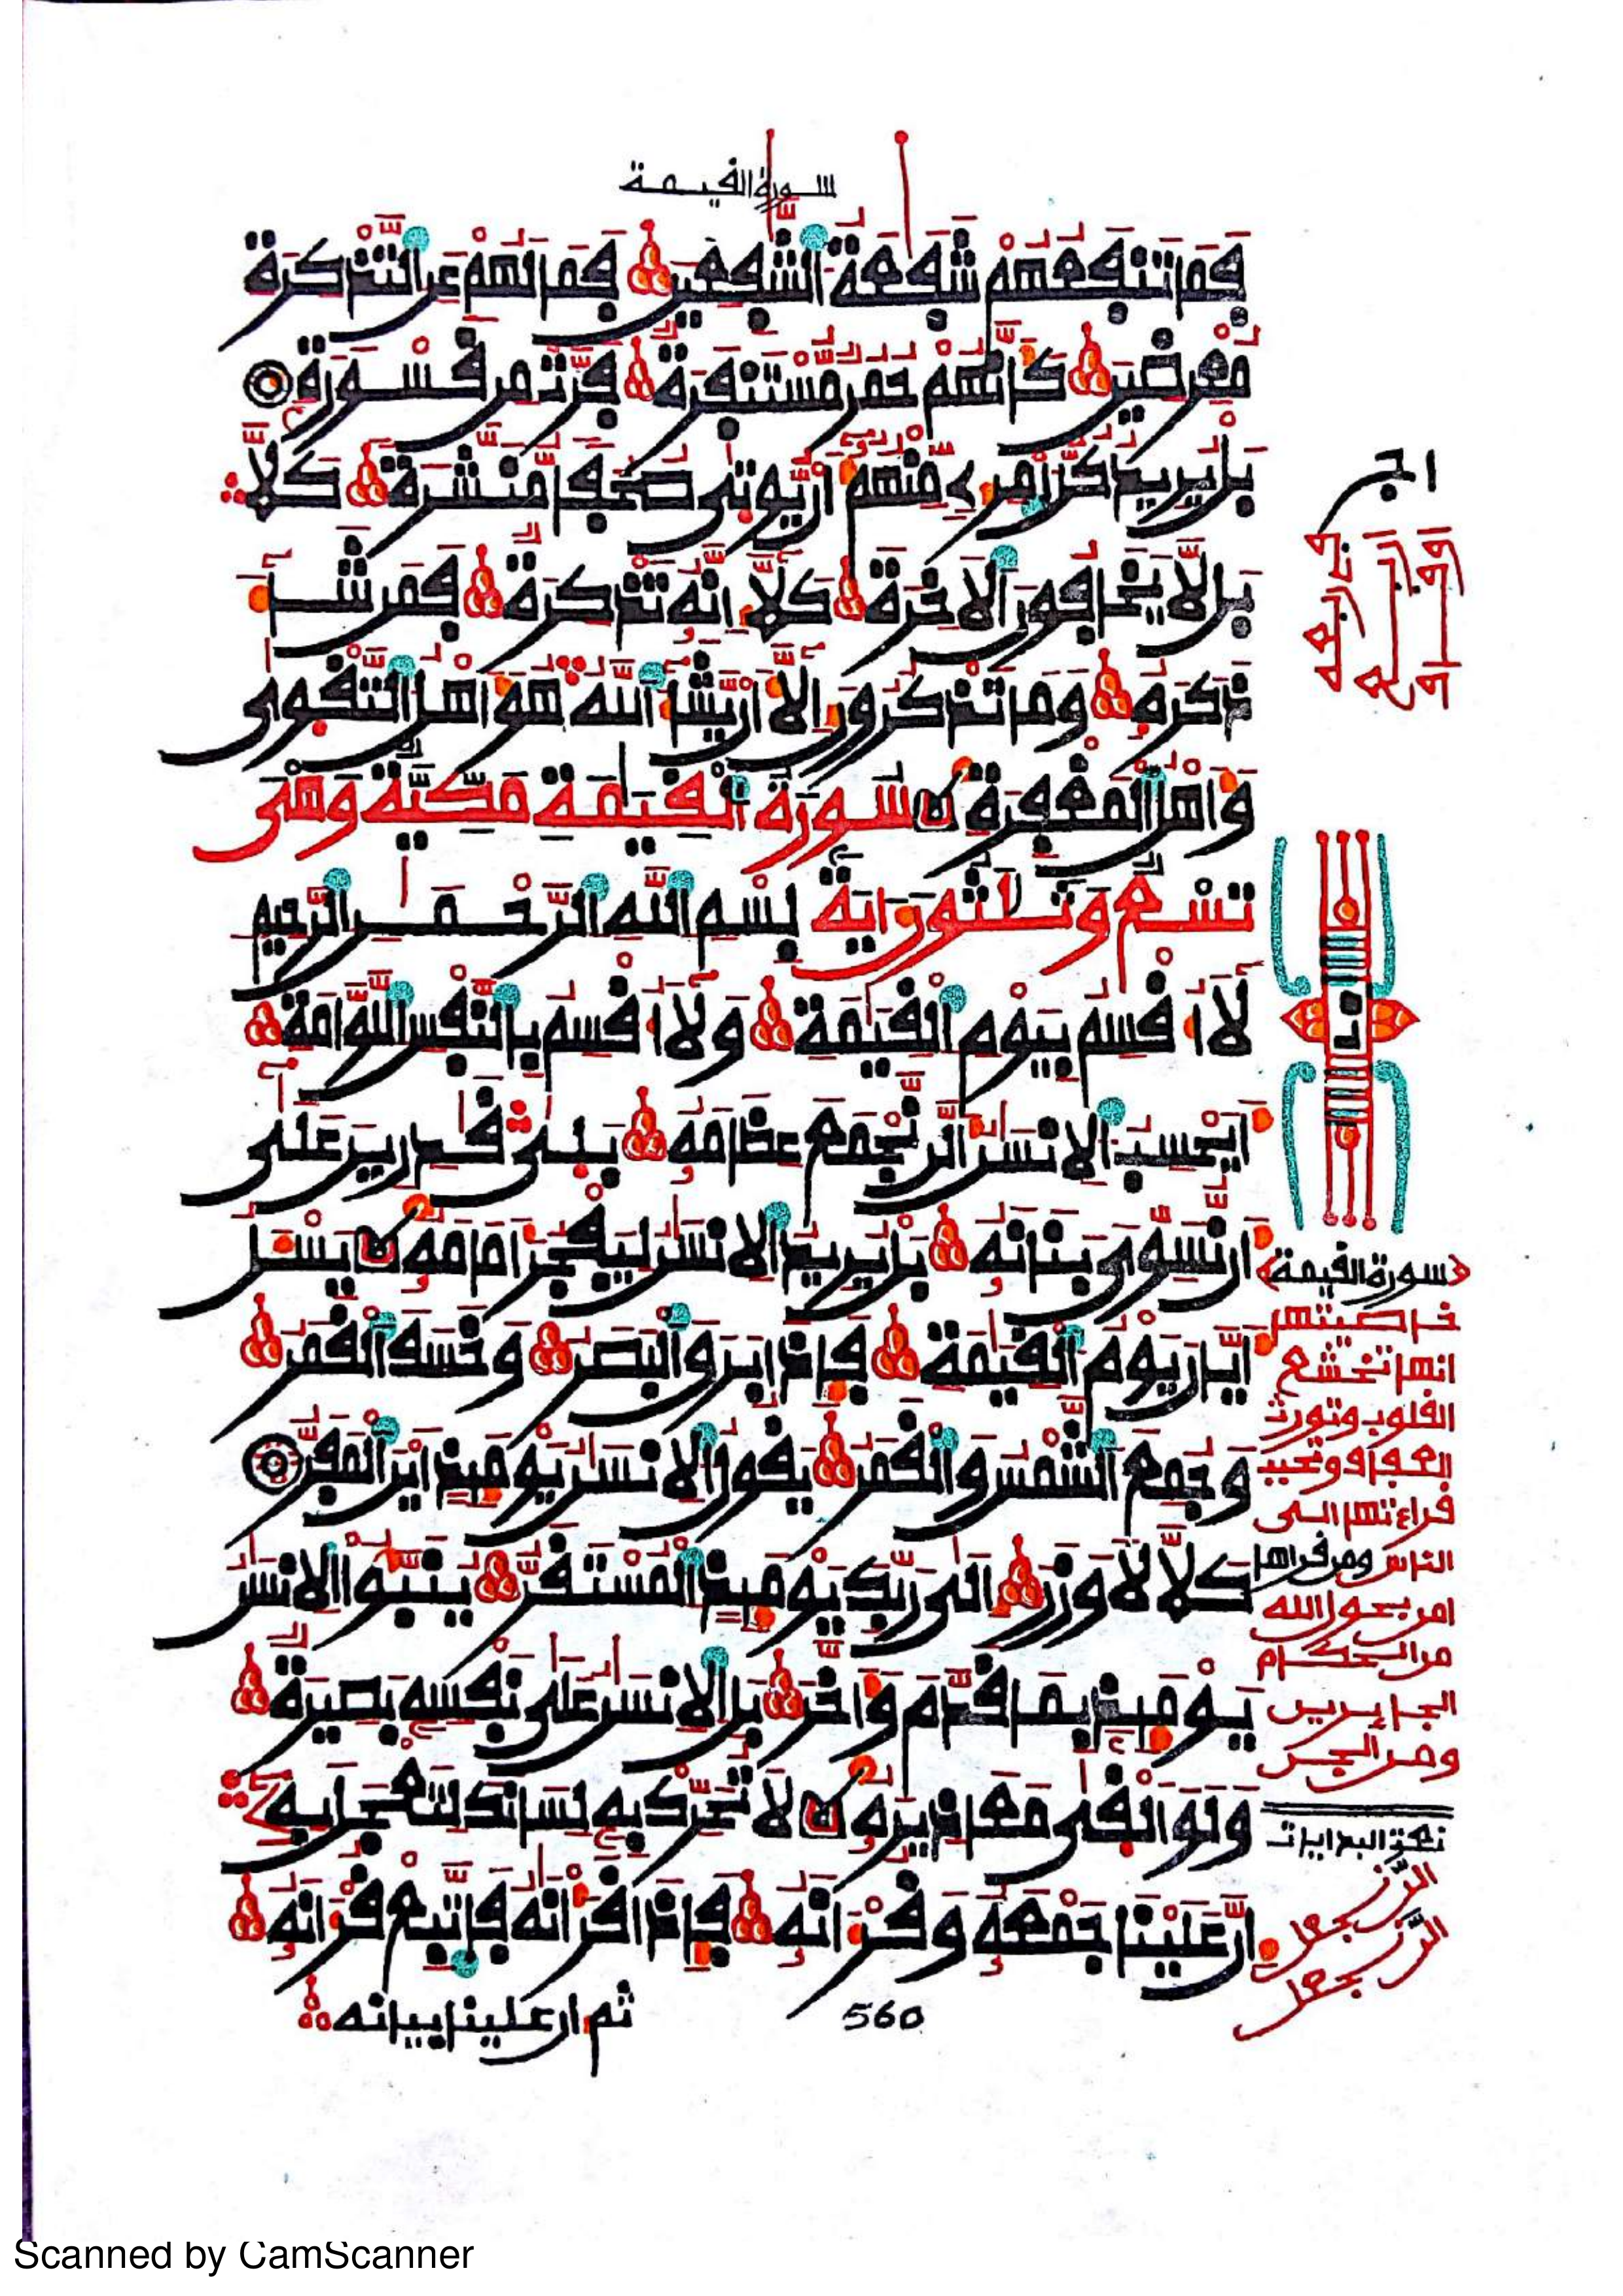 سورة القيمة
فما تنفعهم شفعة الشفعين فما لهم عن التذكرة
معرضين كأنهم حمر مستنفرة فرت من قسورة
بل يريد كل امرئ منهم أن يوتى صحفا منشرة كلا
بل لا يخافون الاخرة كلا إنه تذكرة فمن شاء
ذكره وما تذكرون إلا أن يشاء الله هو أهل التقوى
وأهل المغفرة سورة القيمة مكية وهي
تسع وثلثون اية بسم الله الرحمن الرحيم
لا أقسم بيوم القيمة ولا أقسم بالنفس اللوامة
أيحسب الانسن ألن نجمع عظامه بلى قدرين على
أن نسوي بنانه بل يريد الانسن ليفجر أمامه يسئل
أيان يوم القيمة فإذا برق البصر وخسف القمر
وجمع الشمس والقمر يقول الانسن يومئذ أين المفر
كلا لا وزر إلى ربك يومئذ المستقر ينبؤا الانسن
يومئذ بما قدم وأخر بل الانسن على نفسه بصيرة
ولو ألقى معاذيره لا تحرك به لسانك لتعجل به
إن علينا جمعه وقرءانه فإذا قرأنه فاتبع قرءانه
ثم إن علينا بيانه
560
سورة القيمة
خاصيتها
انها تخشع
القلوب وتورث
العفاف وتحبب
قراءتها الى
الناس ومن قراها
امن بحول الله
من الحكام
الجايرين
ومن الجن
Scanned by CamScanner